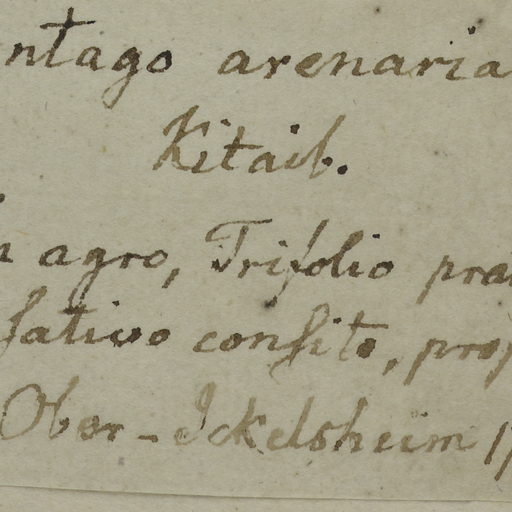 ntago arenaria
Kitaib.
agro, Trifolio pra
sativo consito, prop
Ober-Ickelsheim